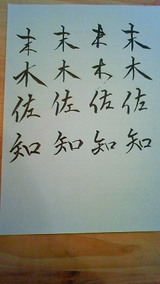 末末末末
木木木木
佐佐佐佐
知知知知